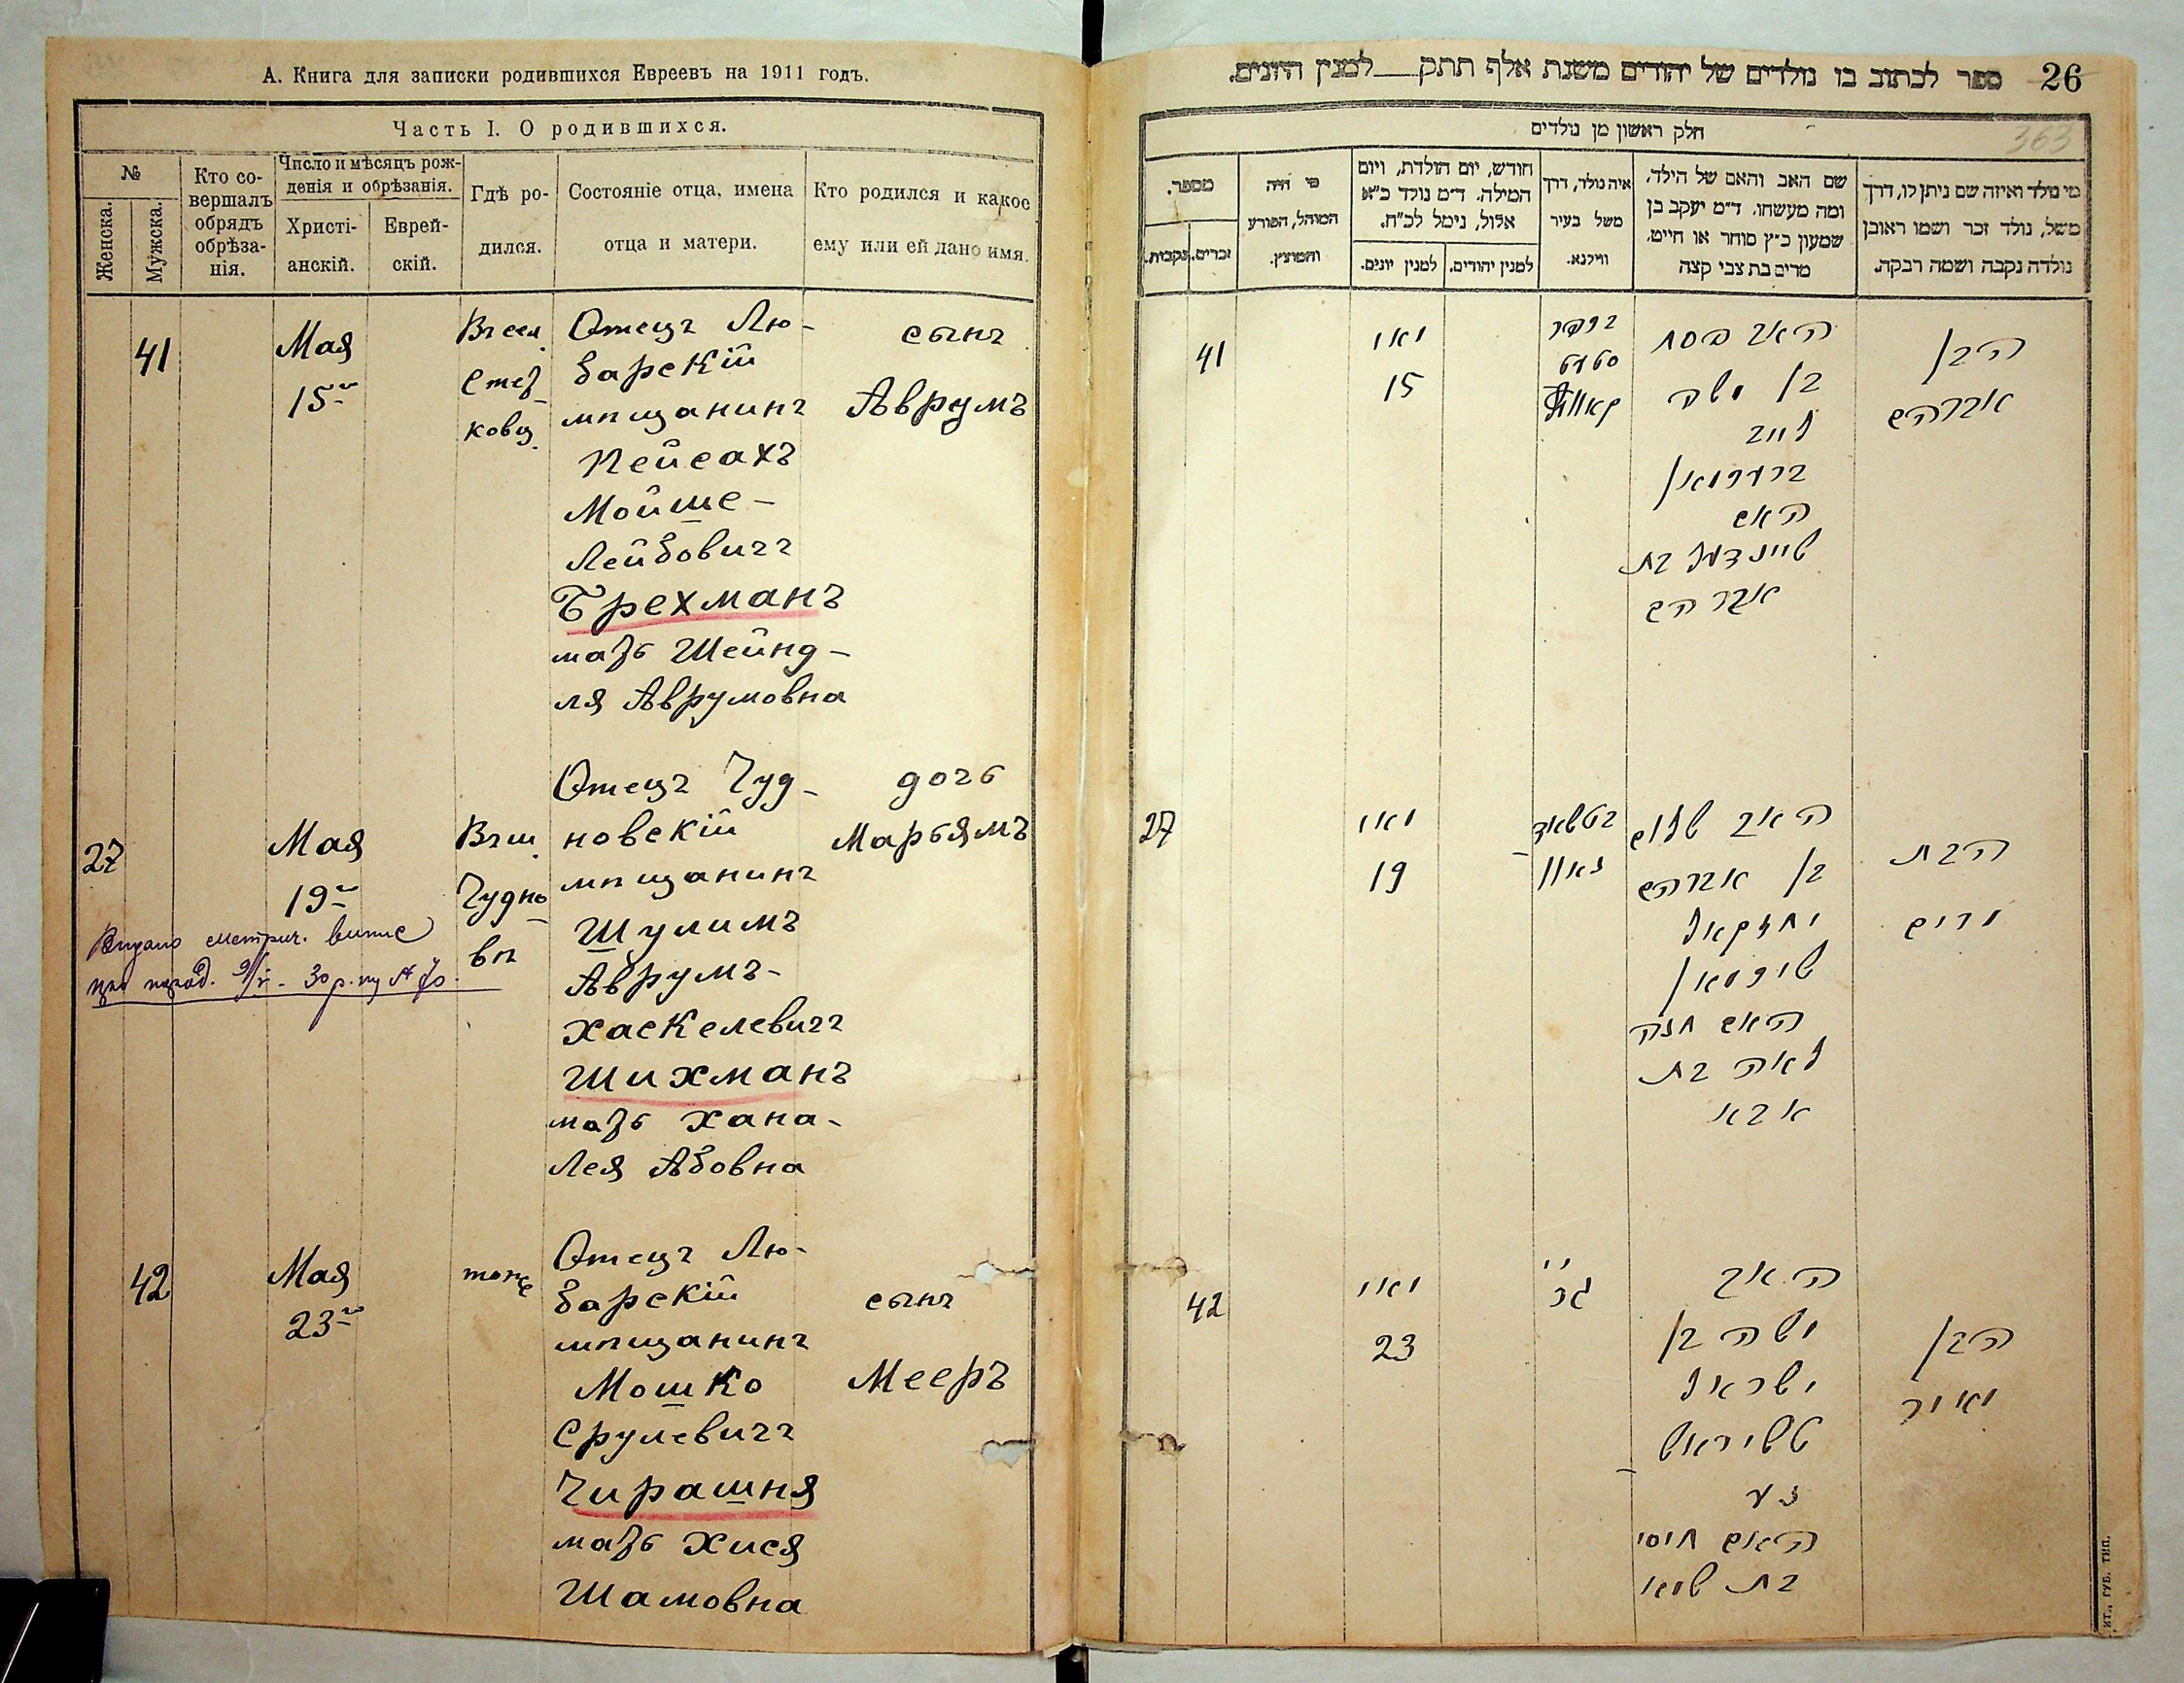 А. Книга для записки родившихся Евреевъ на 1911 годъ.
Часть I. О родившихся.
№
Женска.
Мужска.
Кто со-
вершалъ
обрядъ
обрѣза-
нія.
Число и мѣсяцъ рож-
денія и обрѣзанія.
Христі-
анскій.
Еврей-
скій.
Гдѣ ро-
дился.
Состояніе отца, имена
отца и матери.
Кто родился и какое
ему или ей дано имя.
41
Мая
15
Отецъ Лю-
барскій
мѣщанинъ
Пейсахъ
Мойше-
Лейбовичъ
Брехманъ
мать Шейнд-
ля Аврумовна
сынъ
Аврумъ
27
Мая
19
Чудно
вѣ
Отецъ Чуд-
новскій
мѣщанинъ
Шулимъ
Аврумъ-
Хаскелевичъ
Шихманъ
мать Хана-
Лея Абовна
дочь
Марьямъ
42
Мая
23
тоже
Отецъ Лю-
барскій
мѣщанинъ
Мошко
Срулевичъ
Чирашня
мать Хися
Шамовна
сынъ
Мееръ
26
ספר לכתוב בו נולדים של יהודים משנת אלף תתק למנין היונים.
363
חלק ראשון מן נולדים
מי נולד ואיזה שם ניתן לו, דרך
משל, נולד זכר ושמו ראובן
נולדה נקבה ושמה רבקה.
שם האב והאם של הילד,
ומה מעשהו. ד״מ יעקב בן
שמעון כ״ץ סוחר או חייט,
מרים בת צבי קצה
איה נולד, דרך
משל בעיר
ווילנא.
חודש, יום הולדת, ויום
המילה. ד״מ נולד כ״א
אלול, נימל לכ״ח.
למנין יהודים.
למנין יונים.
מי היה
המוהל, הפורע
והמוצץ.
מספר.
זכרים.
נקבות.
הבן
אברהם
האב פסח
בן משה
לייב
ברעכמאן
האם
שיינדעל בת
אברהם
מאי
15
41
הבת
מרים
האב שלום
בן אברהם
יחזקאל
שיכמאן
האם חנה
לאה בת
אבא
מאי
19
27
הבן
מאיר
האב
משה בן
ישראל
טשיראש
נע
האם חיסי
בת שמאי
מאי
23
42